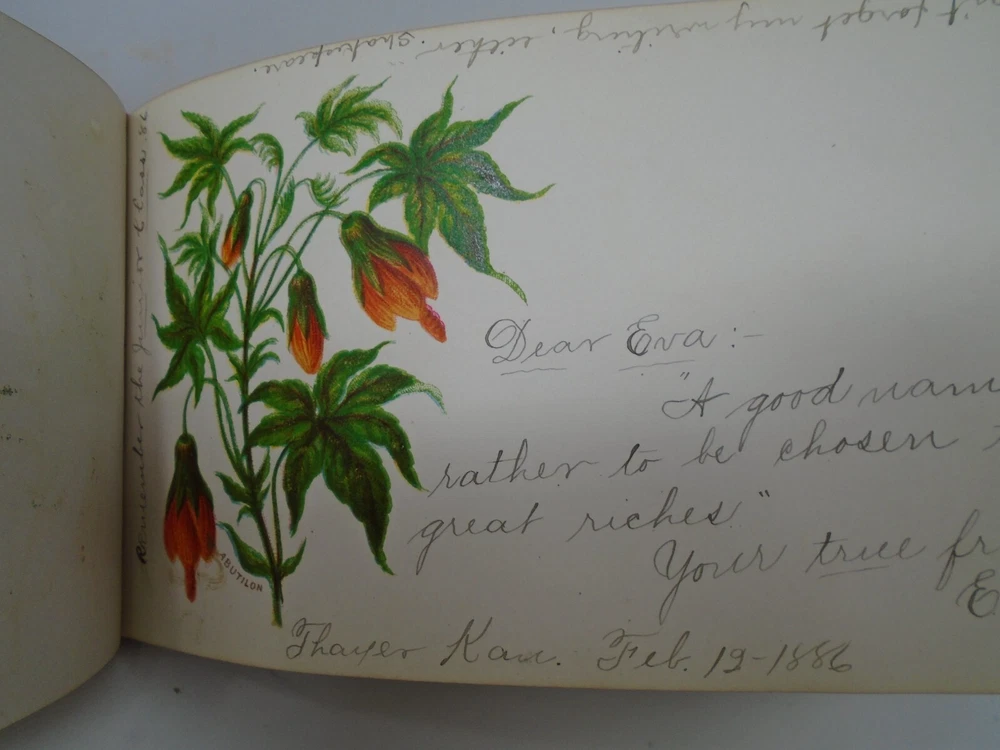 n't forget my writing, either. Shakespeare.
Remember the Junior Class '86
Dear Eva:-
"A good nam
rather to be chosen
great riches"
Your true fr
E
Thayer Kan. Feb. 19-1886
ABUTILON